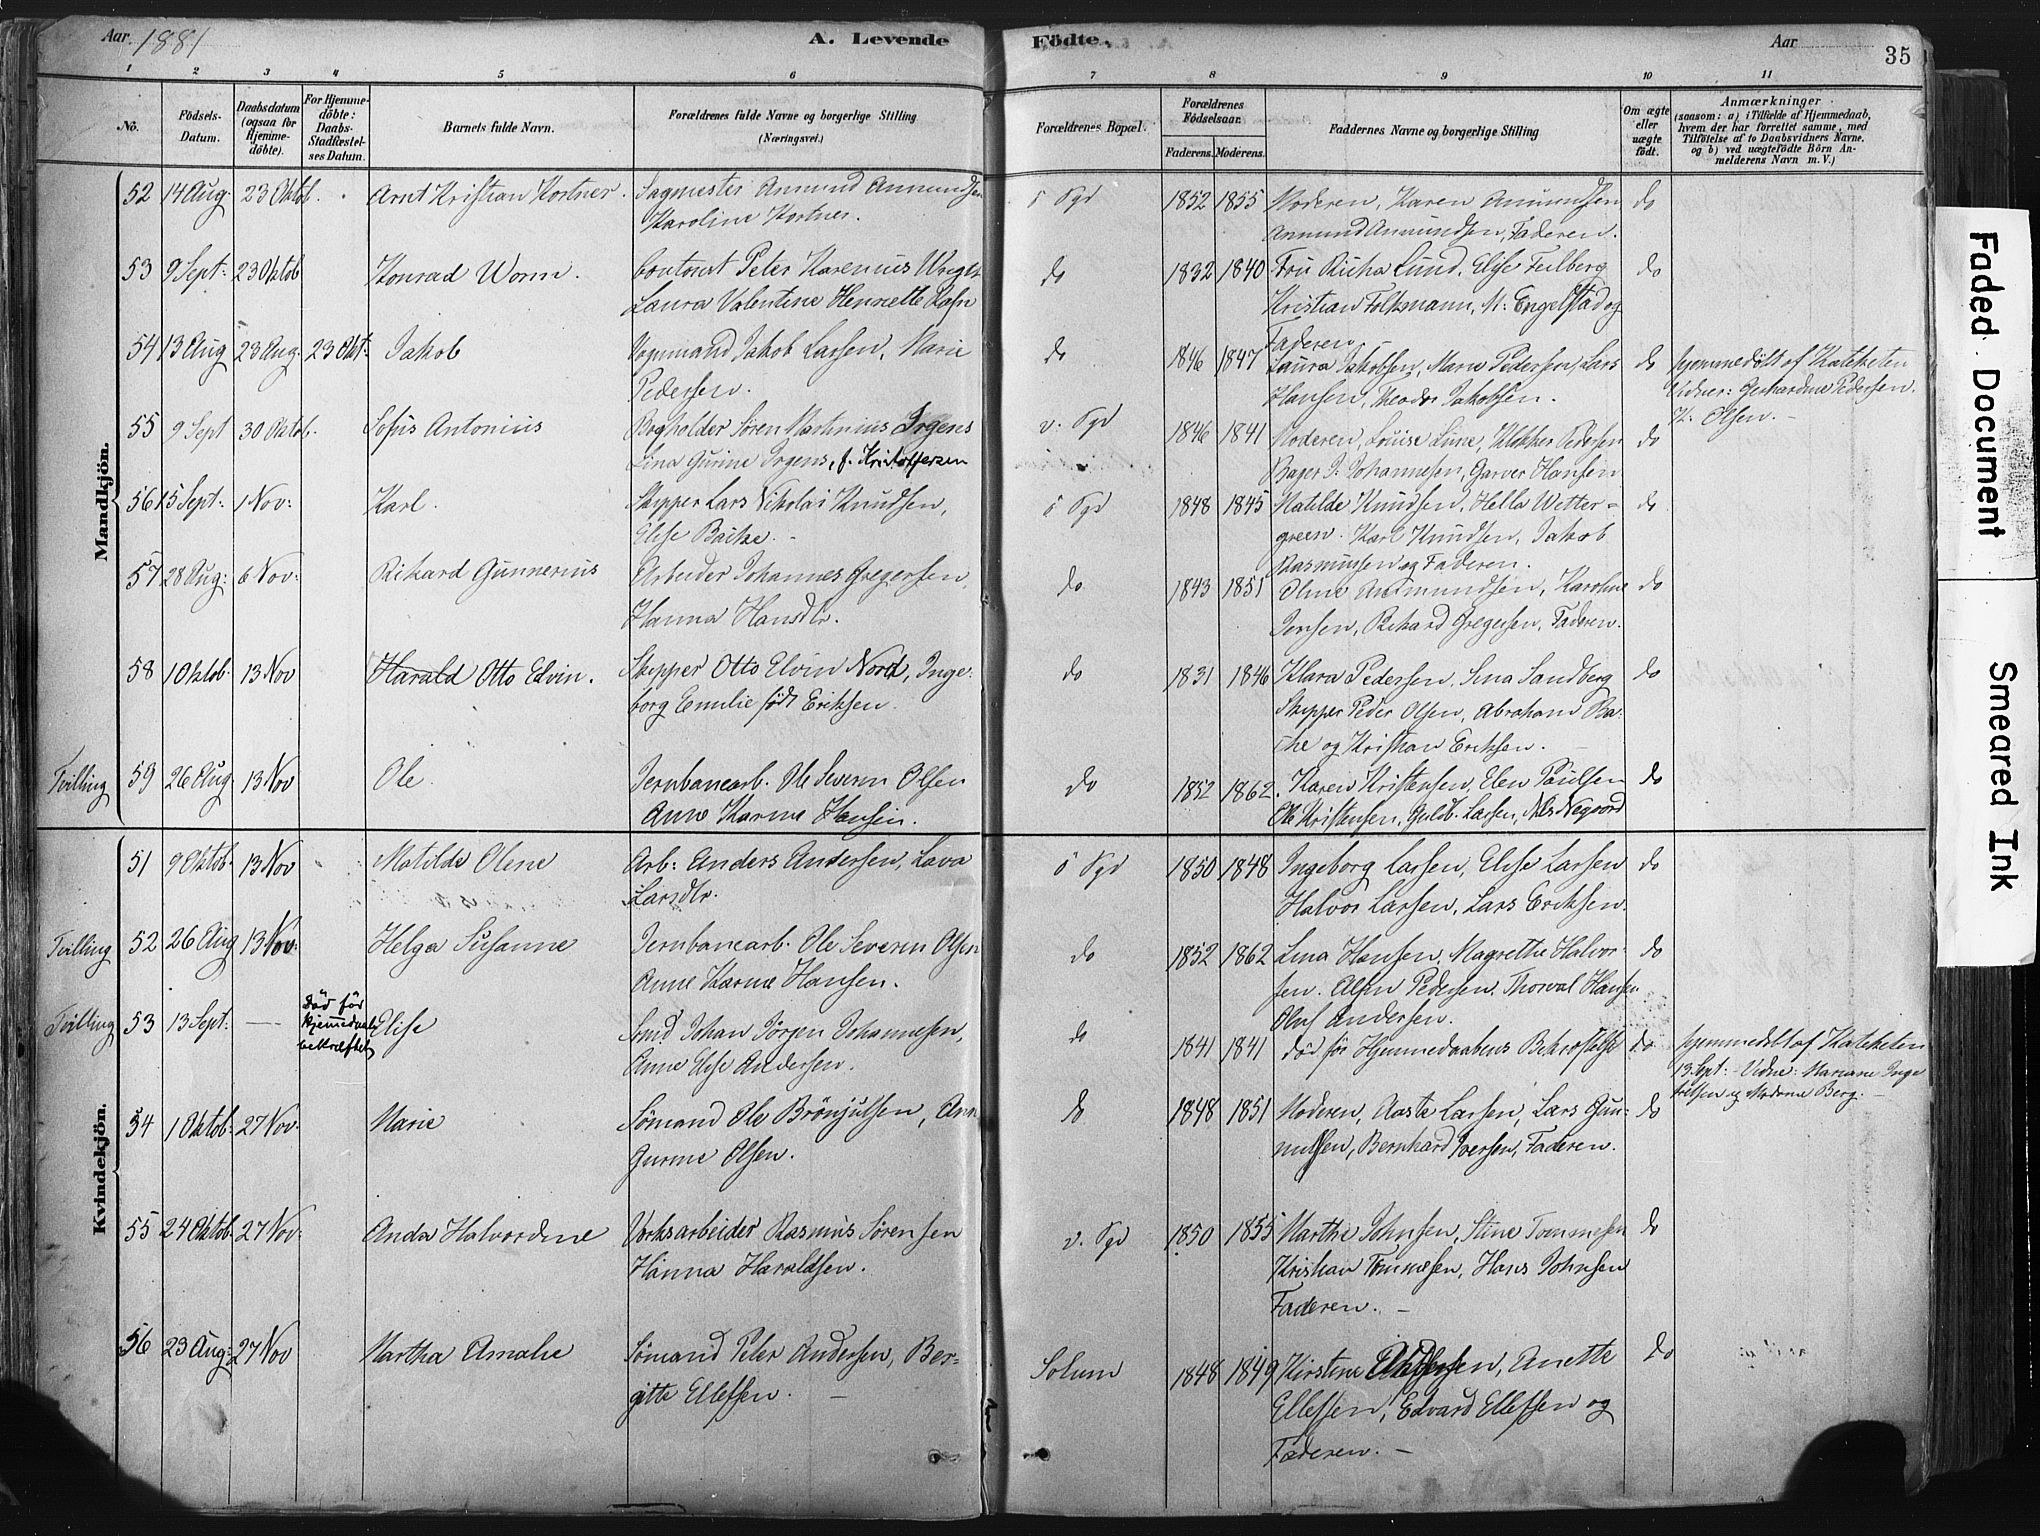 Aar. 1881 A. Levende Födte. Aar 35
1 2 3 4 5 6 7 8 9 10 11
No.
Födsels-Datum.
Daabsdatum (ogsaa for Hjemmedöbte).
For Hjemmedöbte: Daabs-Stadfæstelses Datum.
Barnets fulde Navn.
Forældrenes fulde Navne og borgerlige Stilling
(Næringsvei.)
Forældrenes Bopæl.
Forældrenes Födselsaar.
Faderens. Moderens.
Faddernes Navne og borgerlige Stilling
Om ægte eller uægte födt.
Anmærkninger
(saasom: a) i Tilfælde af Hjemmedaab, hvem der har forrettet samme, med Tilföielse af to Daabsvidners Navne, og b) ved uægtefödte Börn Anmelderens Navn m. V.)
Mandkjön.
52 14 Aug 23 Oktob. Arnt Kristian Kortner. Sagmester Anmund Anmundsen ö Sgd 1852 1855 Moderen, Karen Anmundsen do
Karoline Kortner. Anmund Anmundsen, Faderen.
53 9 Sept: 23 Oktob Konrad Worm. Peter Karenius do 1832 1840 Fru Lund, Elise Feilberg do
Laura Valentine Henriette Kristian Folkmann, M: Engelstad og
Faderen
54 13 Aug 23 Aug: 23 Okt: Jakob Vognmand Jakob Larsen, Marie do 1846 1847 Laura Jakobsen, Marie Pedersen, Lars do hjemmedöbt af Katekteten
Pedersen. Hansen, Theodor Jakobsen. Vidner: Gerhardine Pedersen.
K: Olsen. -
55 9 Sept 30 Oktob. Sofus Antonius Bogholder Sören Martinius Irgens v. Sgd 1846 1841 Moderen, Louise Lune, Klokker Pedersen do
Lina Gurine Irgens, f. Kristoffersen Bager J. Johannesen, Garver Hansen
56 15 Sept: 1 Nov: Karl. Skipper Lars Nikolai Knudsen, ö Sgd 1848 1845 Matilde Knudsen, Hella Wetter= do
Elise green. Karl Knudsen, Jakob
Rasmussen og Faderen.
57 28 Aug: 6 Nov: Rikard Gunnerius Arbeider Johannes Gregersen, do 1843 1851 Oline Anmundsen, Karoline do
Hanna Hansdtr. Jensen, Rikard Gregersen, Faderen.
58 1 Oktob. 13 Nov Harald Otto Edvin. Skipper Otto Elvin Nord, Inge: do 1831 1846 Klara Pedersen, Lina Sandberg do
borg Emilie født Eriksen. Skipper Peder Olsen, Abraham Ba:
che og Kristian Eriksen. -
Tvilling 59 26 Aug 13 Nov Ole. Jernbanearb. Ole Severin Olsen do 1852 1862. Karen Kristensen, Elen Paulsen do
Anne Karine Hansen. Ole Kristensen, Guldb. Larsen, Nils Negaard
Kvindekjön.
51 9 Oktob. 13 Nov Matilde Olene Arb: Anders Andersen, Lava ö Sgd 1850 1848 Ingeborg Larsen, Elise Larsen do
Larsdtr. Halvor Larsen, Lars Eriksen.
Tvilling 52 26 Aug 13 Nov: Helga Susanne Jernbanearb. Ole Severin Olsen do 1852 1862 Lina Hansen, Magrethe Halvor: do
Anne Karine Hansen. sen. Alfin Pedersen. Thorval Hansen
Oluf Andersen.
Tvilling 53 13 Sept: — Död för hjemmedaab bekræftet Elise Smed Johan Jörgen Johannesen, do 1841 1841 død før Hjemmedaabens Bekræftelse do hjemmedöbt af Katekteten
Anne Elise Andersen. 13 Sept: - Vidne: Mariane Inge
bretsen og Madame Berg. -
54 1 Oktob: 27 Nov. Marie Sömand Ole Brönjulsen, Ann do 1848 1851 Moderen, Aasta Larsen, Lars Gun: do
Gurine Olsen. nulsen, Bernhard Iversen, Faderen.
55 24 Oktob. 27 Nov. Anda Halvordine Verksarbeider Rasmus Sörensen v. Sgd 1850 1855 Marthe Johnsen, Stine Tommesen do
Hanna Haraldsen. Kristian Tommesen, Hans Johnsen
Faderen. -
56 23 Aug: 27 Nov Martha Amalie Sömand Peter Andersen, Ber- Solum 1848 1849 Kirstine Andersen, Anette do
gitte Ellefsen. - Ellefsen, Edvard Ellefsen og
Faderen. -
Faded Document
Smeared Ink